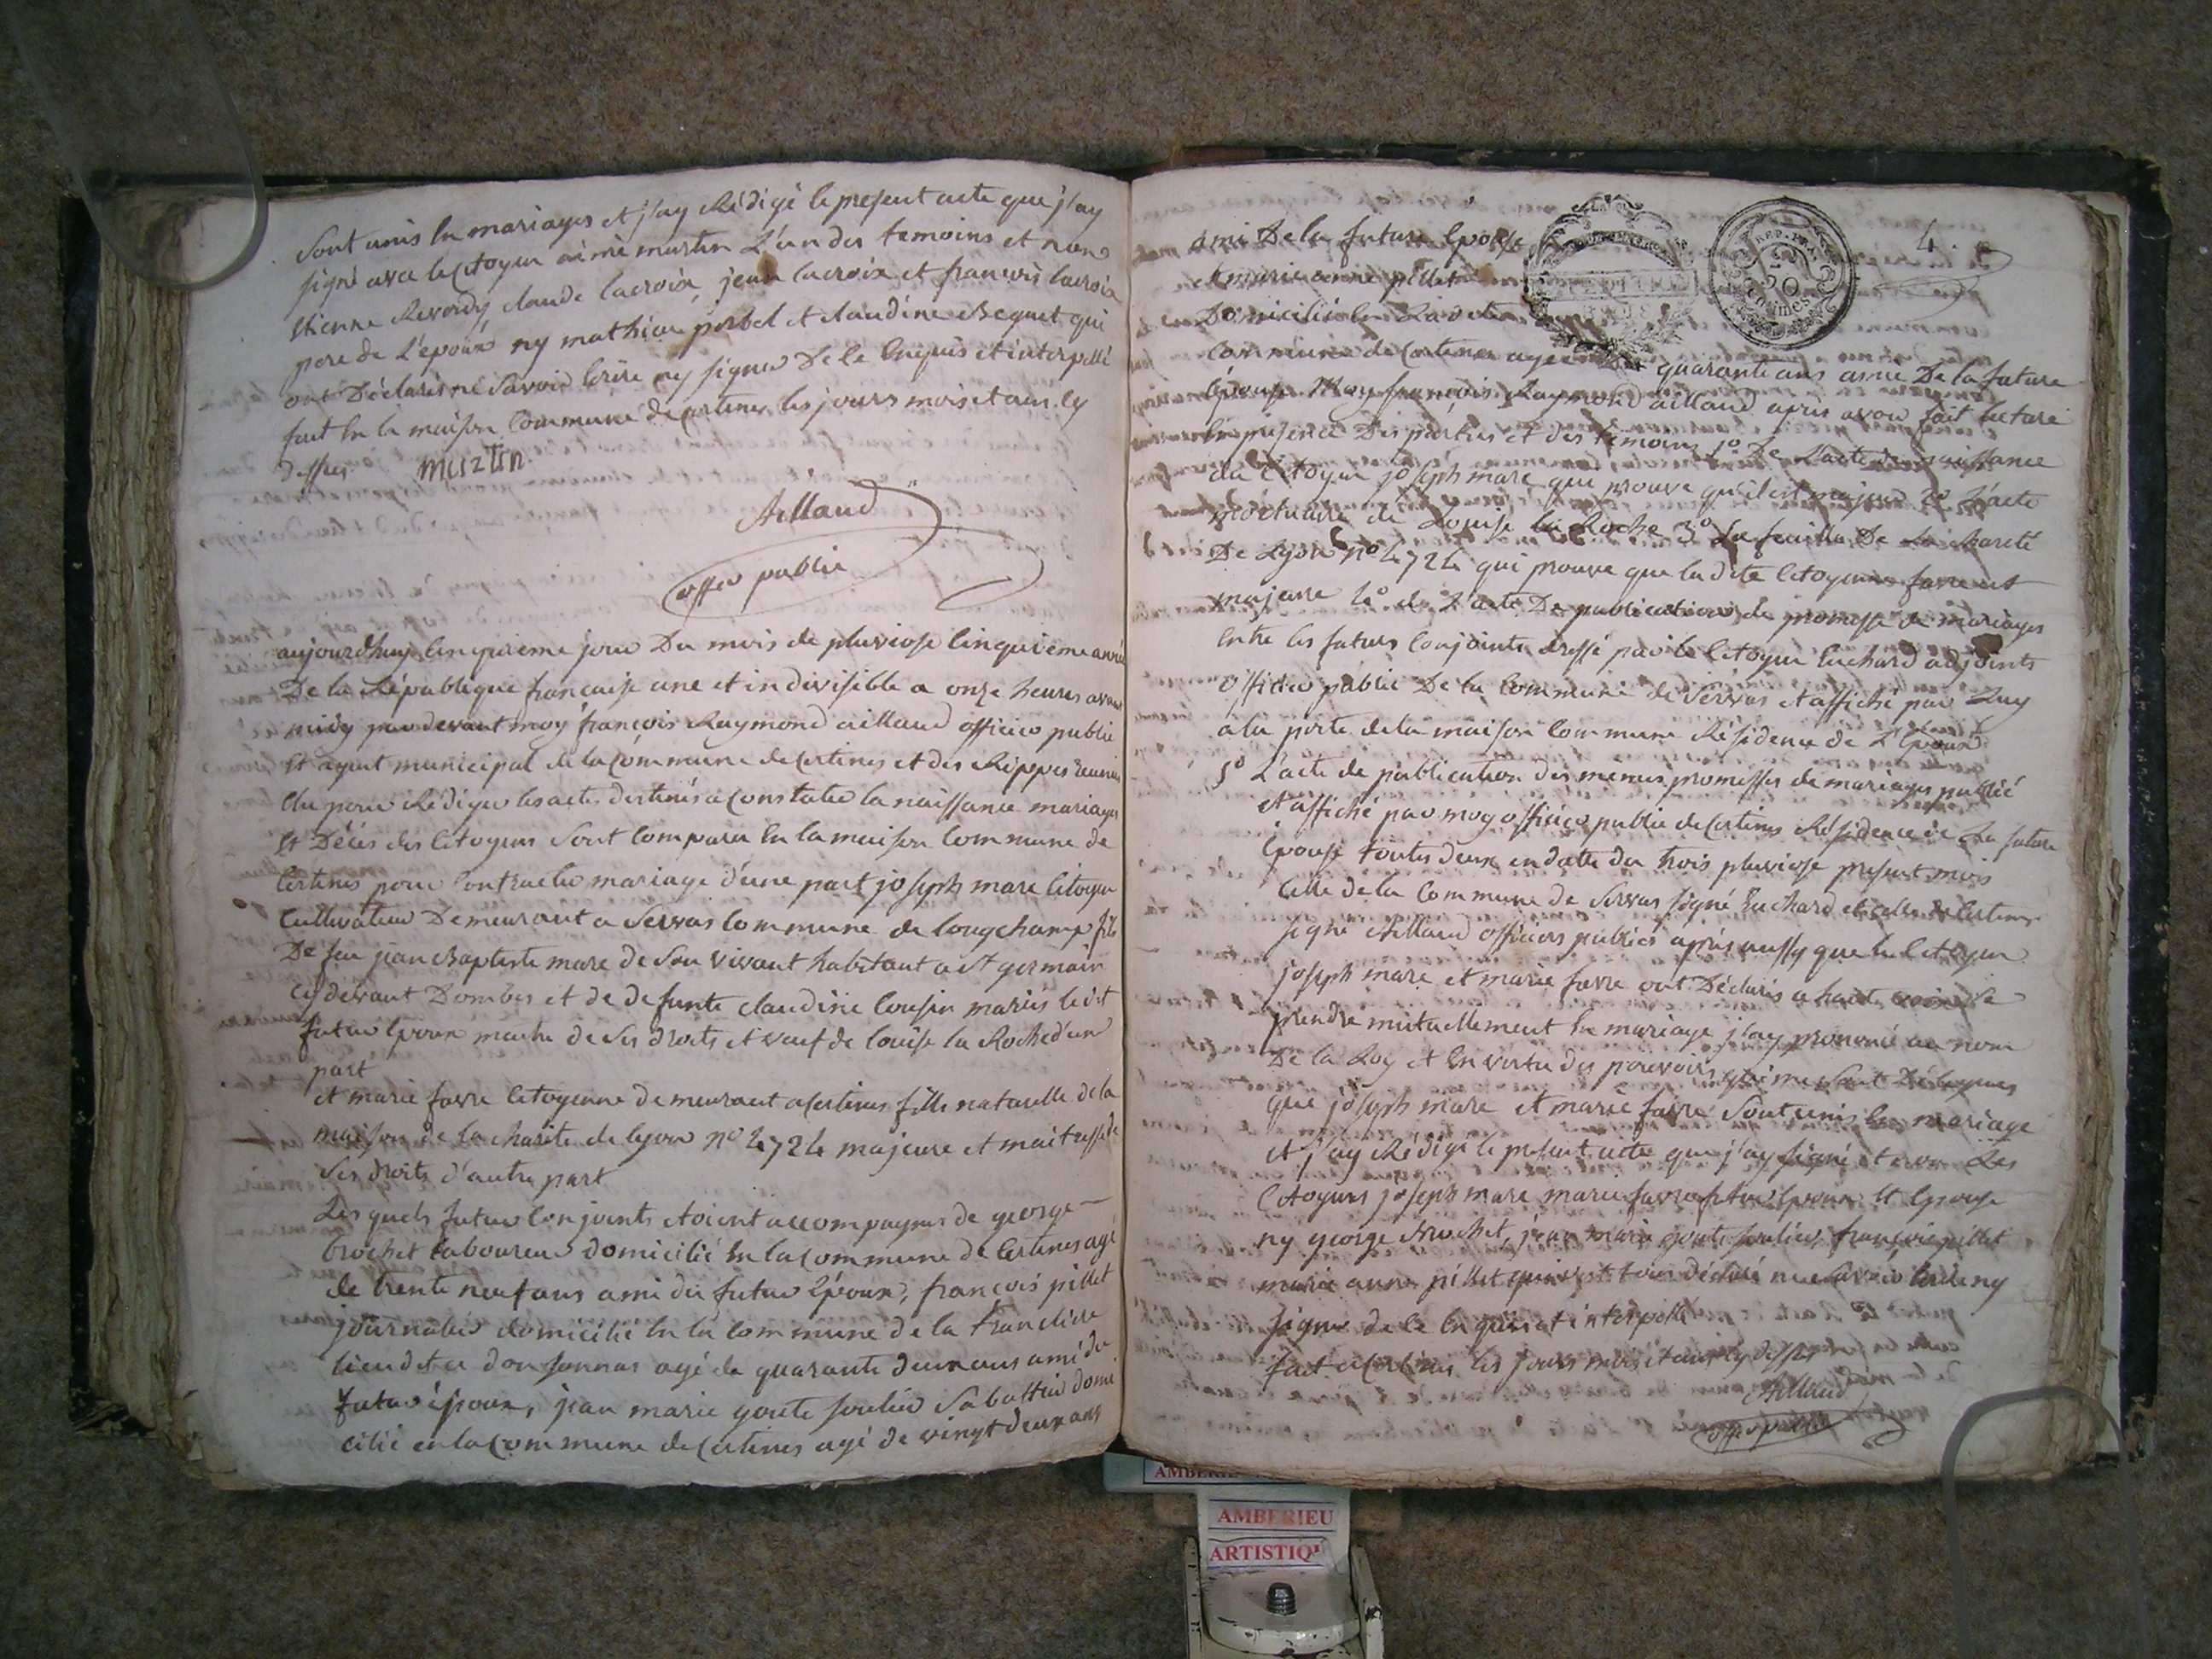 Sont unis en mariages et j'ay Rédigé le present acte que j'ay
signé avec le citoyen aimé martin L'un des temoins et non
Etienne Revordy claude lacroix, jean lacroix et francois lacroix
pere de L'epoux ny mathieu porbel et claudine Bequet qui
ont Déclarés ne Savoir Ecrire ny signer De Ce Enquis et interpellé
fait En la maison Commune de certines les jours mois et an Cy
dessus martin
Aillaud
offer public
aujourdhuy Cinquieme jour Du mois de pluviose Cinquieme année
De la République francaise une et indivisible a onze heures avant
midy par devant moy françois Raymond aillaud officier public
Et agent municipal de la Commune de Certines et des Rippes Reunies
Elu pour Rediger les actes destinés a Constater la naissance mariages
Et Décés des Citoyens Sont Comparu En la maison Commune de
Certines pour Contracter mariage d'une part joseph mare Citoyen
Cultivateur Demeurant a Servas Commune de longchamp fils
De feu jean Baptiste mare de Son vivant habitant a St germain
Cy devant Dombes et de defunte claudine Cousin mariés ledit
futur Epoux maitre de Ses droits et veuf de louise la Roche d'une
part
et marie favre Citoyenne demeurant a Certines fille naturelle de la
maison de la charité de lyon no 4724 majeure et maitresse de
Ses droits d'autre part
Lesquels futur Conjoints etoient accompagnes de george
brochet laboureur domicilié En la Commune de Certines agé
de trente neuf ans ami du futur Epoux, francois pillet
journalier domicilié En la Commune de la tranclière
lieu dit a donsonnas agé de quarante deux ans ami du
futur époux, jean marie goute soulier Sabottier domi
cilié en la Commune de Certines agé de vingt deux ans
4.
REP. FRA.
50
Centimes
ami De la future Epouse
et marie anne pillet
Domiciliée En La dite
Commune de Certines agee de quarante ans amie De la future
Epouse Moy francois Raymond aillaud apres avoir fait lecture
En presence Des parties et des temoins 1o De L'acte de naissance
du Citoyen joseph mare qui prouve qu'il est majeur 2o L'acte
mortuaire de Louise la Roche 3o La feuille De La charité
De Lyon no 4724 qui prouve que la dite Citoyenne favre est
majeure 4o de L'acte De publications de promesse de mariages
Entre les futurs Conjoints dressé par le Citoyen Euchard adjoints
officier public De la Commune de Servas et affiché par Luy
a la porte de la maison Commune Résidence de L'Epoux
5o L'acte de publication des memes promesses de mariages publié
et affiché par moy officier public de Certines Résidence de La future
Epouse toutes deux en datte du trois pluviose present mois
Celle de la Commune de Servas signé Euchard et celle de Certines
signé Aillaud officiers publics après aussy que le Citoyen
joseph mare et marie favre ont Déclarés a haute voix Se
prendre mutuellement En mariage j'ay prononcé au nom
De la Loy et En vertu des pouvoirs qui me Sont Délegues
que joseph mare et marie favre Sont unis En mariage
et j'ay Rédigé le present acte que j'ay signé et non Les
Citoyens joseph mare marie favre futur Epoux Et Epouse
ny george Brochet, jean marie goute soulier, francois pillet
marie anne pillet qui ont tous déclaré ne Savoir Ecrire ny
signer de Ce Enquis et interpellé
fait a Certines les jours mois et an Cy dessus
Aillaud
offer public
AMBERIEU
ARTISTIQU